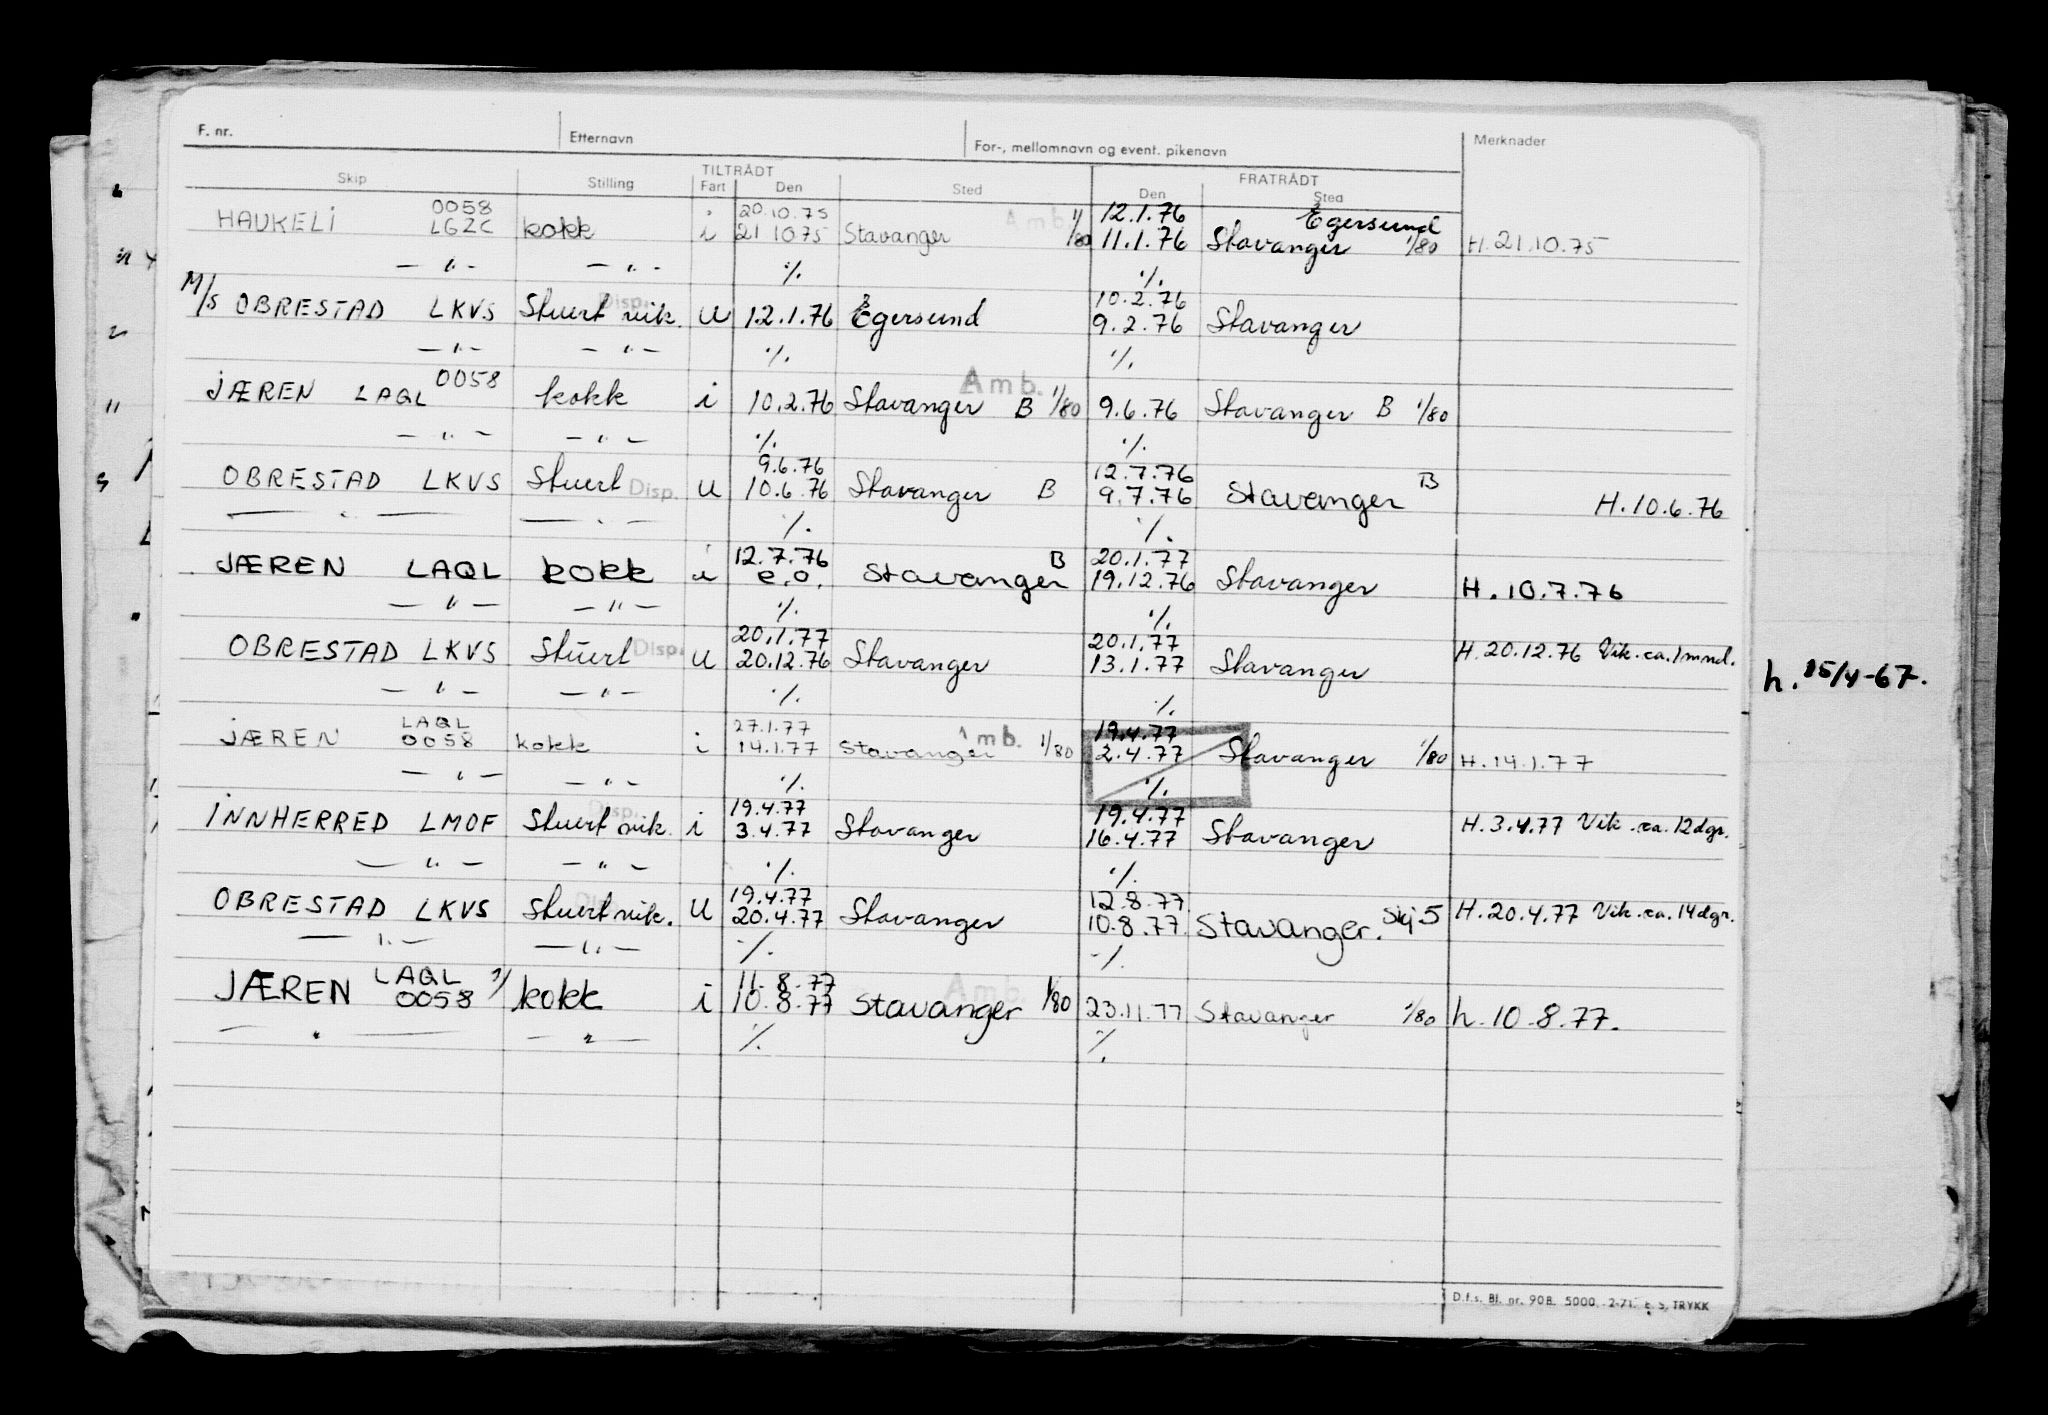 F. nr. Etternavn For-, mellomnavn og event. pikenavn Merknader
TILTRÅDT FRATRÅDT
Skip Stilling Fart Den Sted Den Sted
0058 20.10.75 Amb. 1/ 12.1.76 Egersund
HAUKELI LGZC kokk i 21 10 75 Stavanger 1/80 11.1.76 Stavanger 1/80 H. 21.10.75
— " — — " — ·/. ·/.
Disp. 10.2.76
M/S OBRESTAD LKVS Stuert vik. U 12.1.76 Egersund 9.2.76 Stavanger
— " — — " — ·/. ·/.
0058 Amb.
JÆREN LAQL kokk i 10.2.76 Stavanger B 1/80 9.6.76 Stavanger B 1/80
— " — — " — ·/. ·/.
9.6.76 12.7.76 B
OBRESTAD LKVS Stuert Disp. U 10.6.76 Stavanger B 9.7.76 Stavanger H. 10.6.76
— " — — " — ·/. ·/.
12.7.76 B 20.1.77
JÆREN LAQL kokk i e.o. Stavanger 19.12.76 Stavanger H. 10.7.76
— " — — " — ·/. ·/.
20.1.77 20.1.77
OBRESTAD LKVS Stuert Disp. U 20.12.76 Stavanger 13.1.77 Stavanger H. 20.12.76 Vik. ca. 1 mnd.
h. 15/4-67.
— " — — " — ·/. ·/.
LAQL 27.1.77 Amb. 19.4.77
JÆREN 0058 kokk i 14.1.77 Stavanger 1/80 2.4.77 Stavanger 1/80 H. 14.1.77
— " — — " — ·/. ·/.
Disp. 19.4.77 19.4.77
INNHERRED LMOF Stuert vik. i 3.4.77 Stavanger 16.4.77 Stavanger H. 3.4.77 Vik. ca. 12 dgr.
— " — — " — ·/. ·/.
Disp. 19.4.77 12.8.77
OBRESTAD LKVS Stuert vik. U 20.4.77 Stavanger 10.8.77. Stavanger. Skj 5 H. 20.4.77 Vik. ca. 14 dgr.
— " — — " — ·/. ·/.
LAQL 11.8.77 Amb.
JÆREN 0058 kokk i 10.8.77 Stavanger 1/80 23.11.77 Stavanger 1/80 h. 10.8.77.
— " — — " — ·/. ·/.
D.f.s. Bl. nr. 90B. 5000. 2-71. E. S. TRYKK